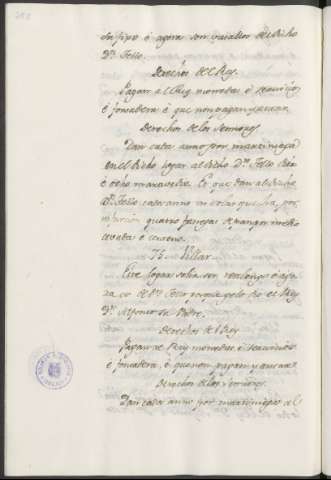 su fijo é agora son vasallos del dicho
Dn. Tello.
Derechos del Rey.
Pagan al Rey monedas é servicios
é fonsadera é que non pagan yantar.
Derechos de los Sennores
Dan cada anno por martiniega
en el dicho logar al dicho Dn. Tello
é ocho maravedis. E que dan al dicho
Dn. Tello cada anno un solar que ha, por
infurcion quatro fanegas de pan por medio
cevada é centeno.
Villar.
Este logar solia ser realengo é agora
es de Dn. Tello porque gelo dió el Rey
Dn. Alfonso su Padre.
Derechos del Rey
Pagan al Rey monedas é servicios
é fonsadera, é que non pagan yantar
Derechos de los Sennores
Dan cada anno por martiniega al